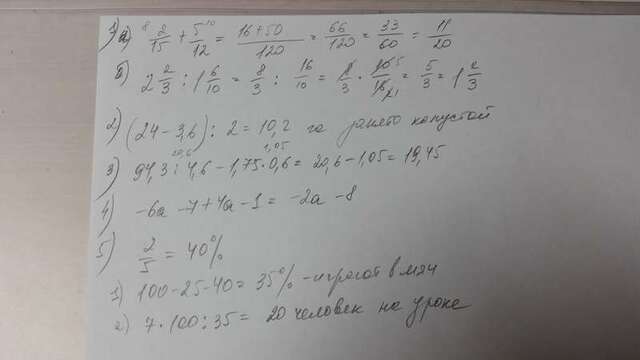 1) а) 8 2/15 + 5/12 10 = (16+50)/120 = 66/120 = 33/60 = 11/20
б) 2 2/3 : 1 6/10 = 8/3 : 16/10 = 8/3 · 10 5/16 2 1 = 5/3 = 1 2/3
2) (24 - 3,6) : 2 = 10,2 га занято капустой
20,6 1,05
3) 94,3 : 4,6 - 1,75 · 0,6 = 20,6 - 1,05 = 19,45
4) -6a -7 + 4a - 1 = -2a - 8
5) 2/5 = 40%
1) 100 - 25 - 40 = 35% - играют в мяч
2) 7 · 100 : 35 = 20 человек на уроке